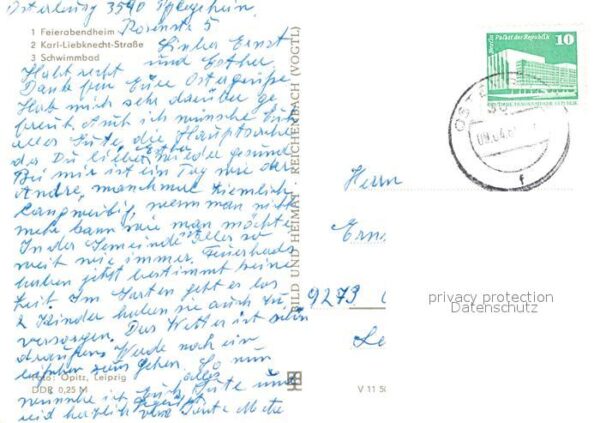 Osterburg 3590 Pflegeheim
Rosenstr 5
1 Feierabendheim
2 Karl-Liebknecht-Straße
3 Schwimmbad
Lieber Ernst
und Esther
Habt recht
Dank für Eure Ostergrüße
Hab mich sehr darüber ge
freut. Auch ich wünsche Euch
alles Gute, die Hauptsache
das Du liebe Esther wieder gesund
Bei mir ist ein Tag wie der
Andre, manchmal ziemlich
langweilig, wenn man nicht
mehr kann wie man möchte
In der Gemeinde alles so
weit wie immer.
haben jetzt bestimmt keine
Zeit. Im Garten gebt es las
2 Kinder haben sie auch zu
versorgen. Das Wetter ist schön
draußen. Werde noch ein
zum gehen. So nun
wünsche ich Euch alles Gute und
seid herzlich gegrüßt von Tante Meta
Foto: Opitz, Leipzig
DDR 0,25 M
BILD UND HEIMAT · REICHENBACH (VOGTL)
V 11 50
Berlin Palast der Republik
10
DEUTSCHE DEMOKRATISCHE REPUBLIK
09.04.8
f
Herrn
Ern
9273
privacy protection
Datenschutz